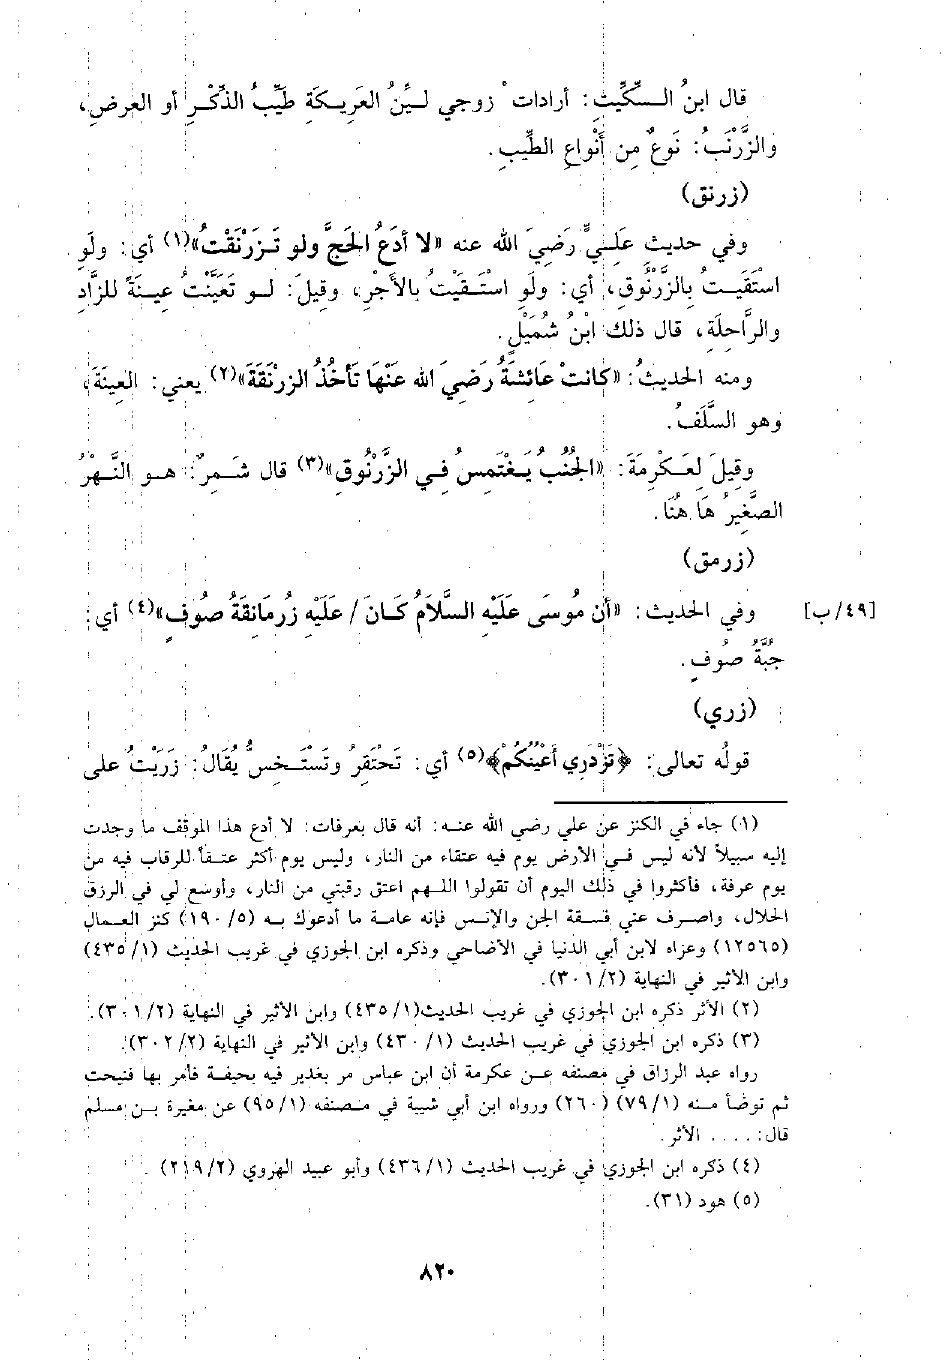 قال ابنُ السِّكِّيتِ: أرادات ْ زوجي ليِّنُ العَرِيكَةِ طَيِّبُ الذِّكْرِ أو العرضِ،
والزَّرْنَبُ: نَوعٌ مِن أَنْواعِ الطِّيبِ.
(زرنق)
وفي حديثِ عليٍّ رَضِيَ الله عنه «لا أدَعُ الحَجَّ ولو تَزَرْنَقْتُ»(١) أي: ولَو
استَقَيتُ بِالزَّرْنُوقِ، أي: ولَوِ استَقَيْتُ بالأَجْرِ، وقيلَ: لو تَعَيَّنْتُ عينَةً للزَّادِ
والرَّاحِلَةِ، قال ذلك ابْنُ شُمَيْلٍ.
ومنه الحديثُ: «كانتْ عَائشَةُ رَضِيَ الله عَنْهَا تَأخُذُ الزرْنَقَةَ»(٢) يعني: العِينَةَ،
وهو السَّلَفُ.
وقيلَ لِعَكْرِمَةَ: «الجُنُبُ يَغْتَمِسُ في الزَّرْنُوقِ»(٣) قال شَمِرٌ: هو النَّهْرُ
الصَّغِيرُ هَا هُنَا.
(زرمق)
[٤٩/ب] وفي الحديث: «أن مُوسَى عَلَيْه السَّلَامُ كَانَ / عَلَيْه زُرمَانقَةُ صُوفٍ»(٤) أي:
جبَّةُ صُوفٍ.
(زري)
قولُه تعالى: ﴿تَزْدَرِي أَعْيُنُكُمْ﴾(٥) أي: تَحْتَقِرُ وتَسْتَخِسُّ يُقَالُ: زَرَيْتُ على
(١) جاء في الكنز عن علي رضي الله عنه: أنه قال بعرفات: لا أدع هذا الموقف ما وجدت
إليه سبيلاً لأنه ليس في الأرض يوم فيه عتقاء من النار، وليس يوم أكثر عتقاً للرقاب فيه من
يوم عرفة، فأكثروا في ذلك اليوم أن تقولوا اللهم اعتق رقبتي من النار، وأوسع لي في الرزق
الحلال، واصرف عني فسقة الجن والإنس فإنه عامة ما أدعوك به (٥/١٩٠) كنز العمال
(١٢٥٦٥) وعزاه لابن أبي الدنيا في الأضاحي وذكره ابن الجوزي في غريب الحديث (١/٤٣٥)
وابن الأثير في النهاية (٢/٣٠١).
(٢) الأثر ذكره ابن الجوزي في غريب الحديث(١/٤٣٥) وابن الأثير في النهاية (٢/٣٠١).
(٣) ذكره ابن الجوزي في غريب الحديث (١/٤٣٠) وابن الأثير في النهاية (٢/٣٠٢).
رواه عبد الرزاق في مصنفه عن عكرمة أن ابن عباس مر بغدير فيه بجيفة فأمر بها فنيحت
ثم توضأ منه (١/٧٩) (٢٦٠) ورواه ابن أبي شيبة في مصنفه (١/٩٥) عن مغيرة بن مسلم
قال: .... الأثر.
(٤) ذكره ابن الجوزي في غريب الحديث (١/٤٣٦) وأبو عبيد الهروي (٢/٢١٩) .
(٥) هود (٣١).
٨٢٠